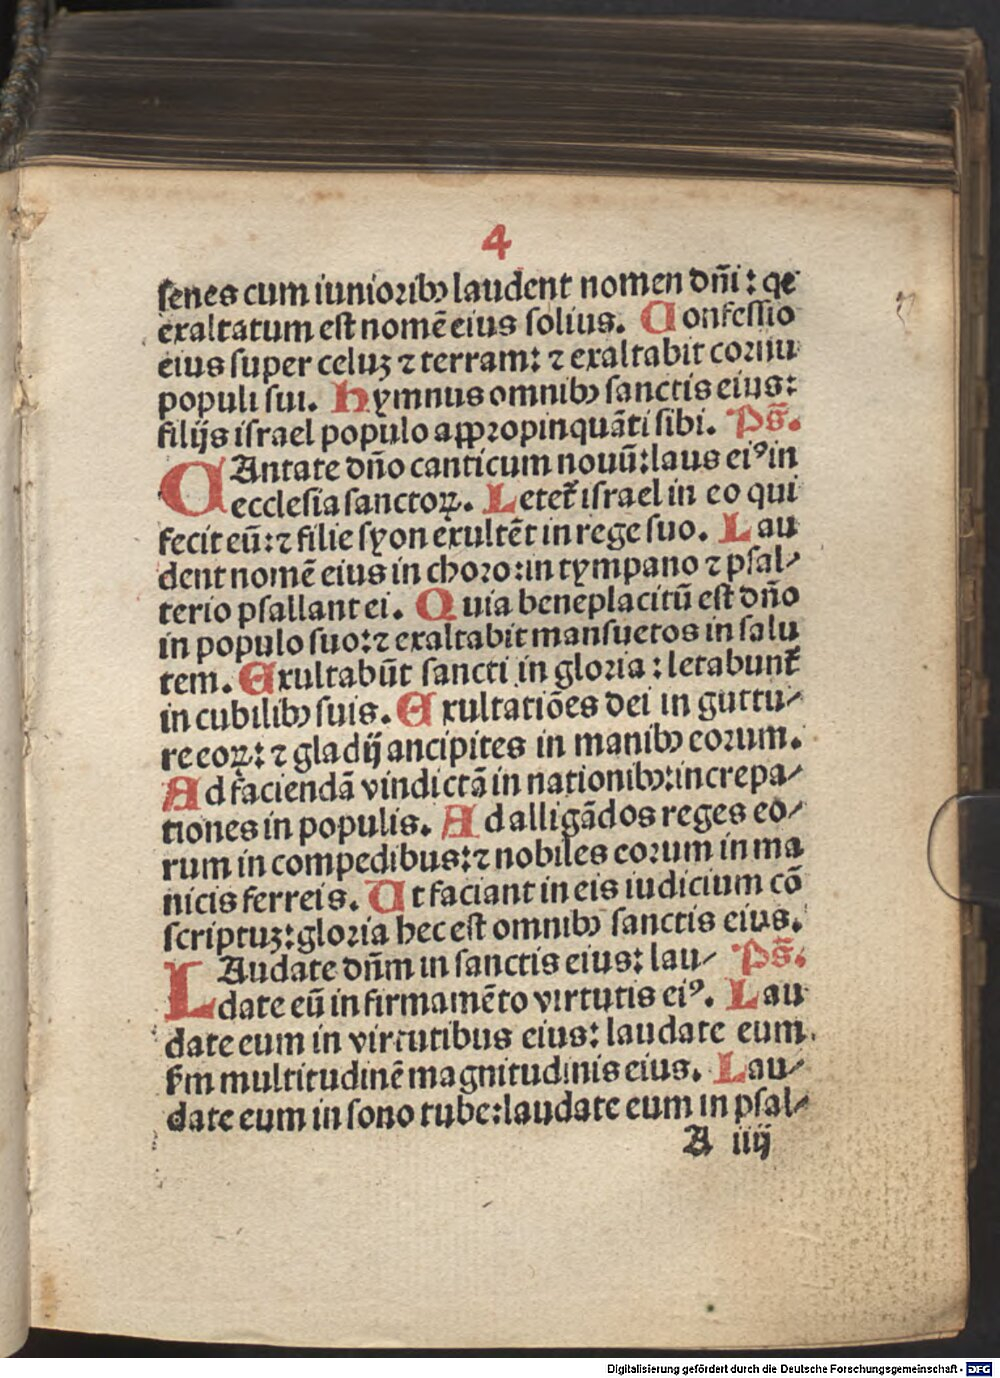 4
senes cum iunioribꝰ laudent nomen dn̄i: qꝛ
exaltatum est nomē eius solius. Confessio
eius super celuꝫ ⁊ terram: ⁊ exaltabit cornu
populi sui. Hymnus omnibꝰ sanctis eius:
filijs israel populo appropinquāti sibi. Ps̄.
CAntate dn̄o canticum nouū: laus eiꝰ in
ecclesia sanctoꝝ. Letet̄ israel in eo qui
fecit eū: ⁊ filie syon exultēt in rege suo. Lau
dent nomē eius in choro: in tympano ⁊ psal⸗
terio psallant ei. Quia beneplacitū est dn̄o
in populo suo: ⁊ exaltabit mansuetos in salu
tem. Exultabūt sancti in gloria: letabunt̄
in cubilibꝰ suis. Exultatiōes dei in guttu⸗
re eoꝝ: ⁊ gladij ancipites in manibꝰ eorum.
Ad faciendā vindictā in nationibꝰ: increpa⸗
tiones in populis. Ad alligādos reges eo⸗
rum in compedibus: ⁊ nobiles eorum in ma
nicis ferreis. Ut faciant in eis iudicium cō
scriptuꝫ: gloria hec est omnibꝰ sanctis eius.
LAudate dn̄m in sanctis eius: lau⸗ Ps̄.
date eū in firmamēto virtutis eiꝰ. Lau
date eum in virtutibus eius: laudate eum
ẜm multitudinē magnitudinis eius. Lau⸗
date eum in sono tube: laudate eum in psal⸗
A iiij
Digitalisierung gefördert durch die Deutsche Forschungsgemeinschaft - DFG